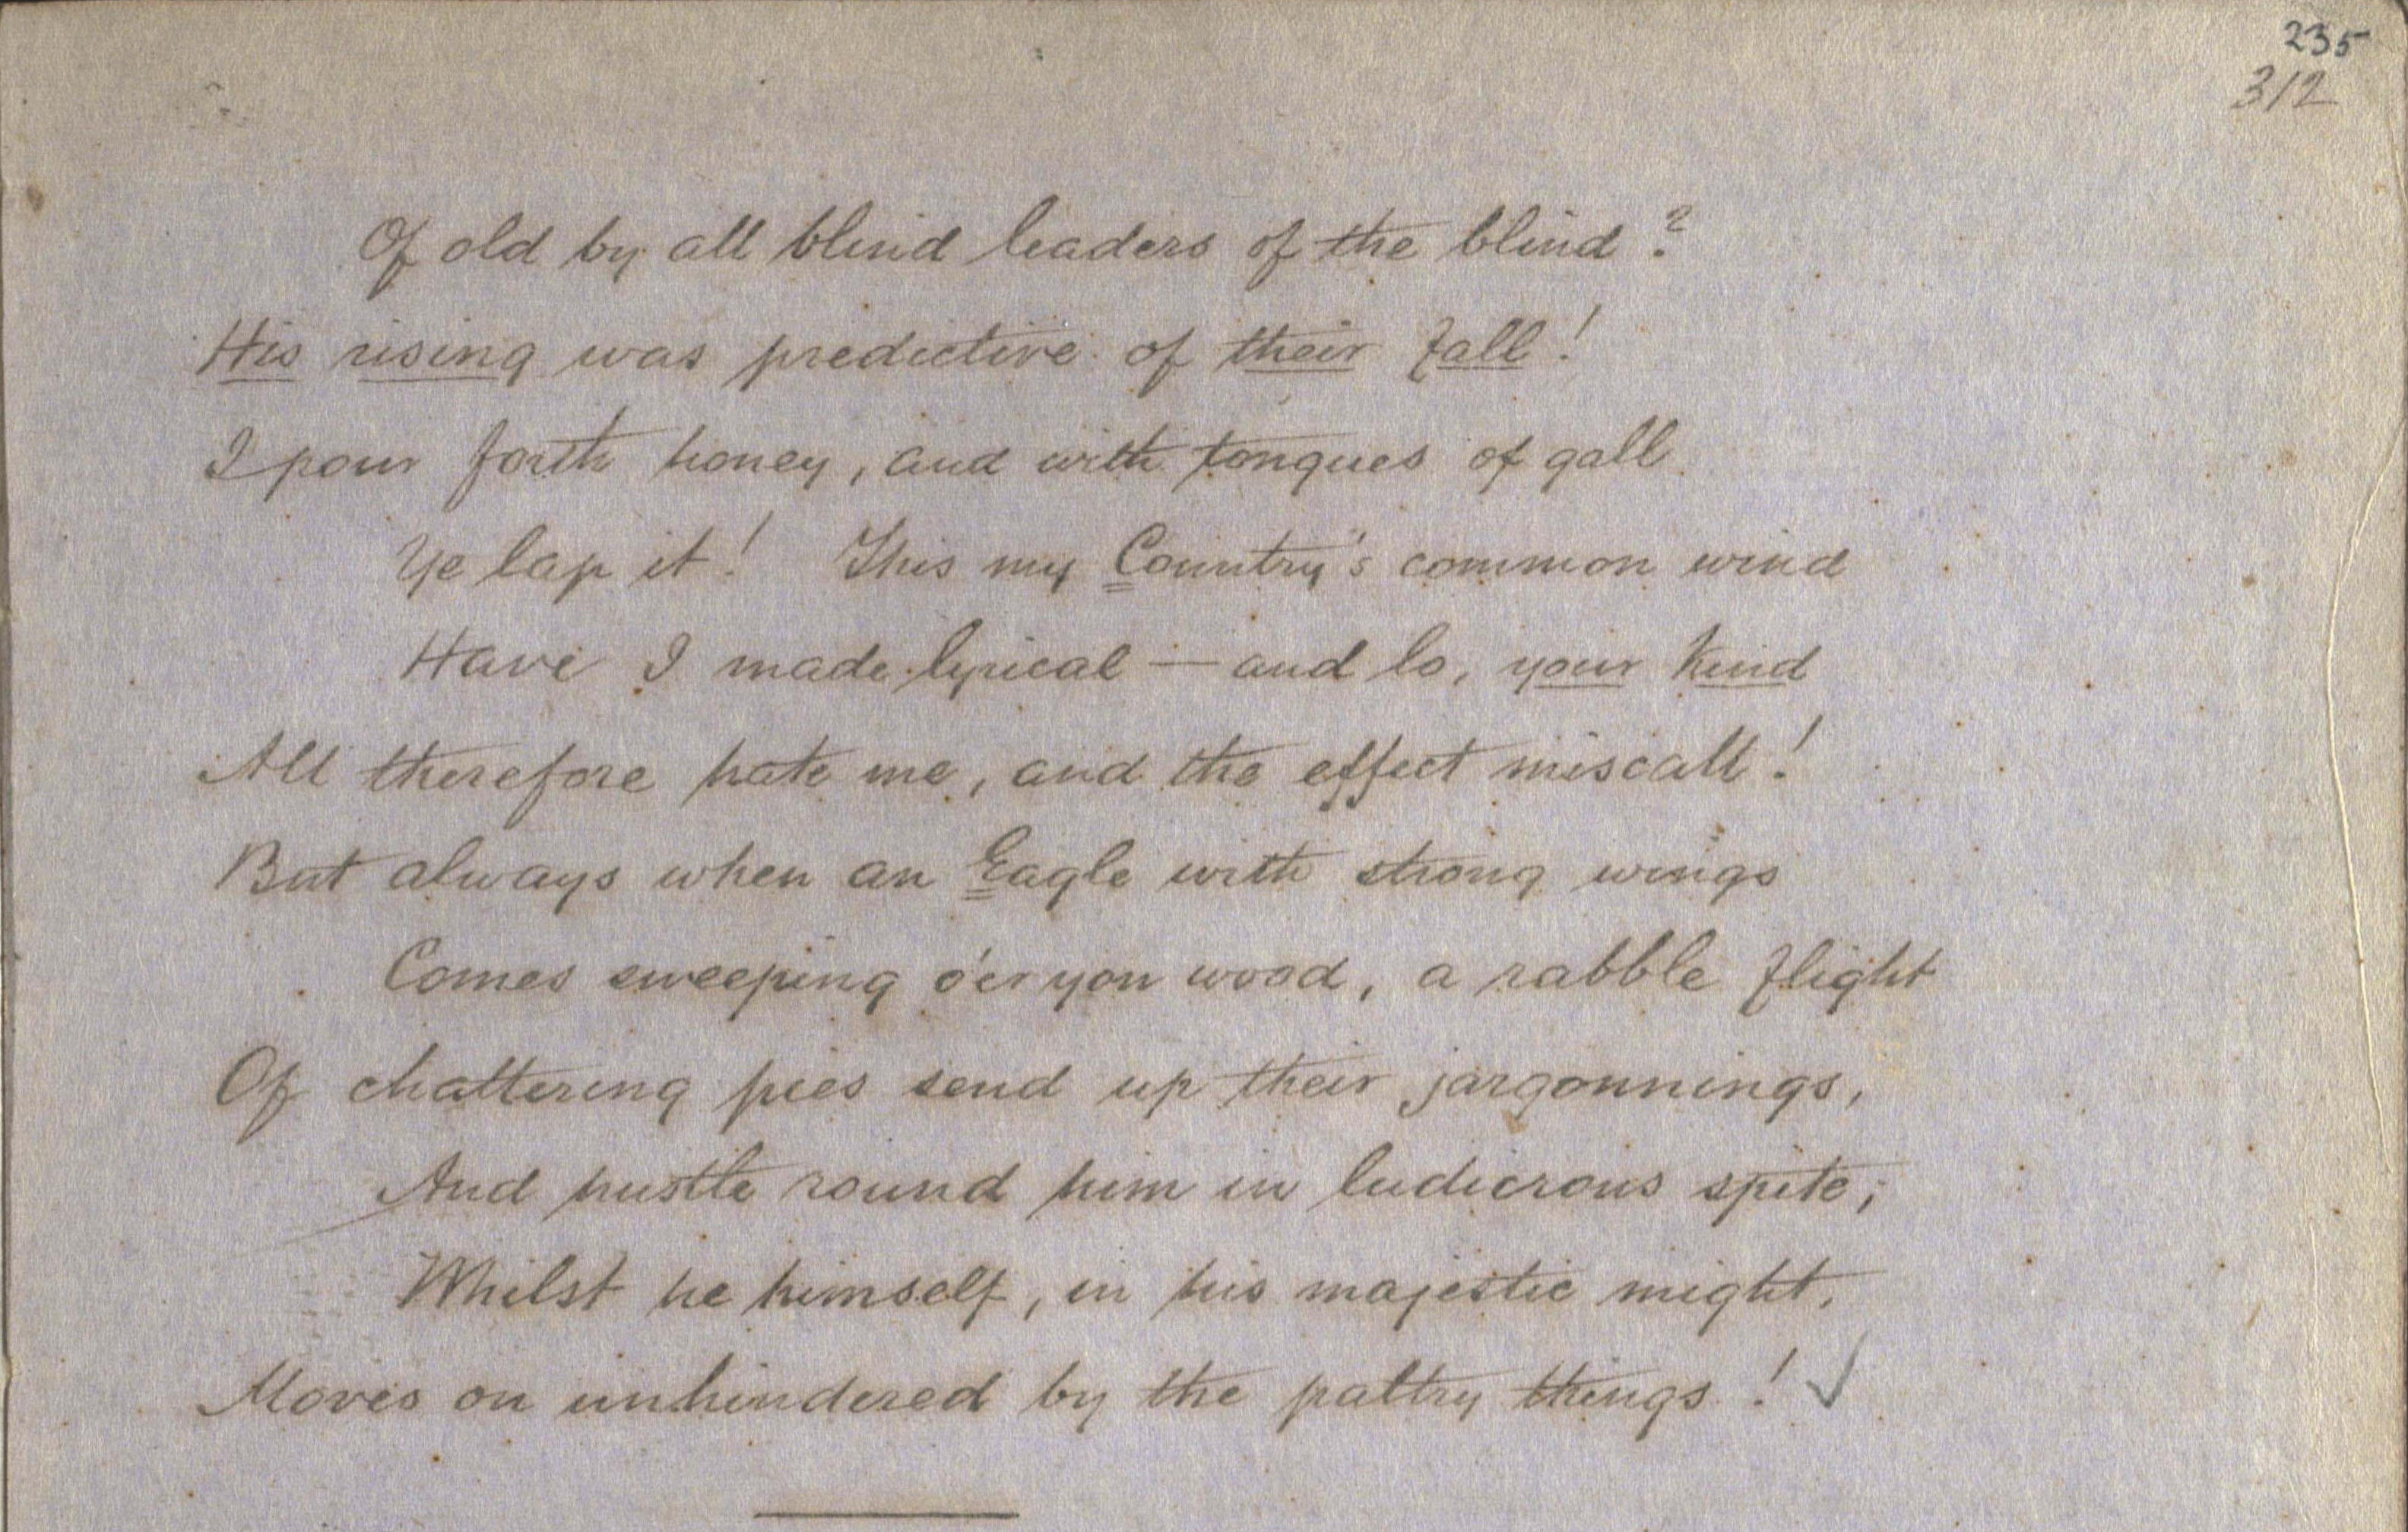 235
312
Of old by all blind leaders of the blind?
His rising was predictive of their fall!
I pour forth honey, and with tongues of gall
Ye lap it! This my Country's common wind
Have I made lyrical — and lo, your kind
All therefore hate me, and the effect miscall!
But always when an Eagle with strong wings
Comes sweeping o'er yon wood, a rabble flight
Of chattering pies send up their jargonnings,
And hustle round him in ludicrous spite;
Whilst he himself, in his majestic might,
Moves on unhindered by the paltry things! ✓